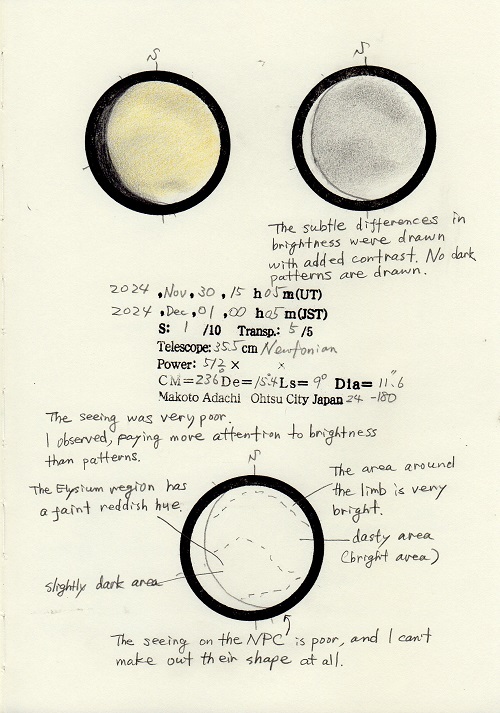 N N
The subtle differences in
brightness were drawn
with added contrast. No dark
patterns are drawn.
2024 , Nov , 30 , 15 h 05 m (UT)
2024 , Dec , 01 , 00 h 05 m (JST)
S: 1 /10 Transp.: 5 /5
Telescope: 35.5 cm Newtonian
Power: 512 × ×
CM=236° De=15.4° Ls= 9° Dia= 11.″6
Makoto Adachi Ohtsu City Japan 24 -180
The seeing was very poor.
I observed, paying more attention to brightness
than patterns.
N
The Elysium region has
a faint reddish hue.
The area around
the limb is very
bright.
dasty area
(bright area)
slightly dark area
The seeing on the NPC is poor, and I can't
make out their shape at all.